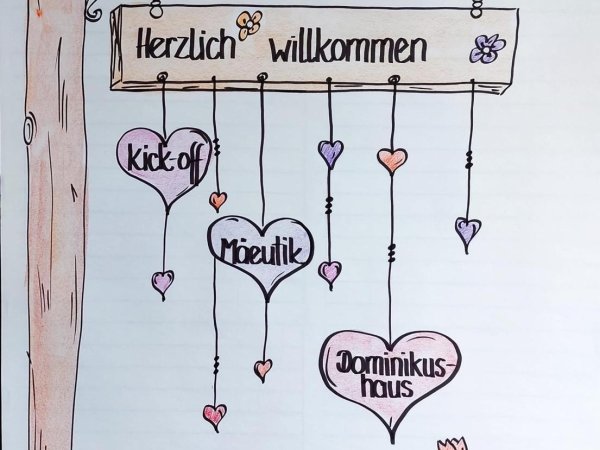 Herzlich willkommen
Kick-off
Mäeutik
Dominikus-
haus